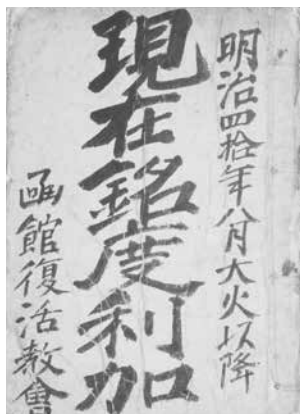 明治四拾年八月大火以降
現在銘度利加
函館復活教會